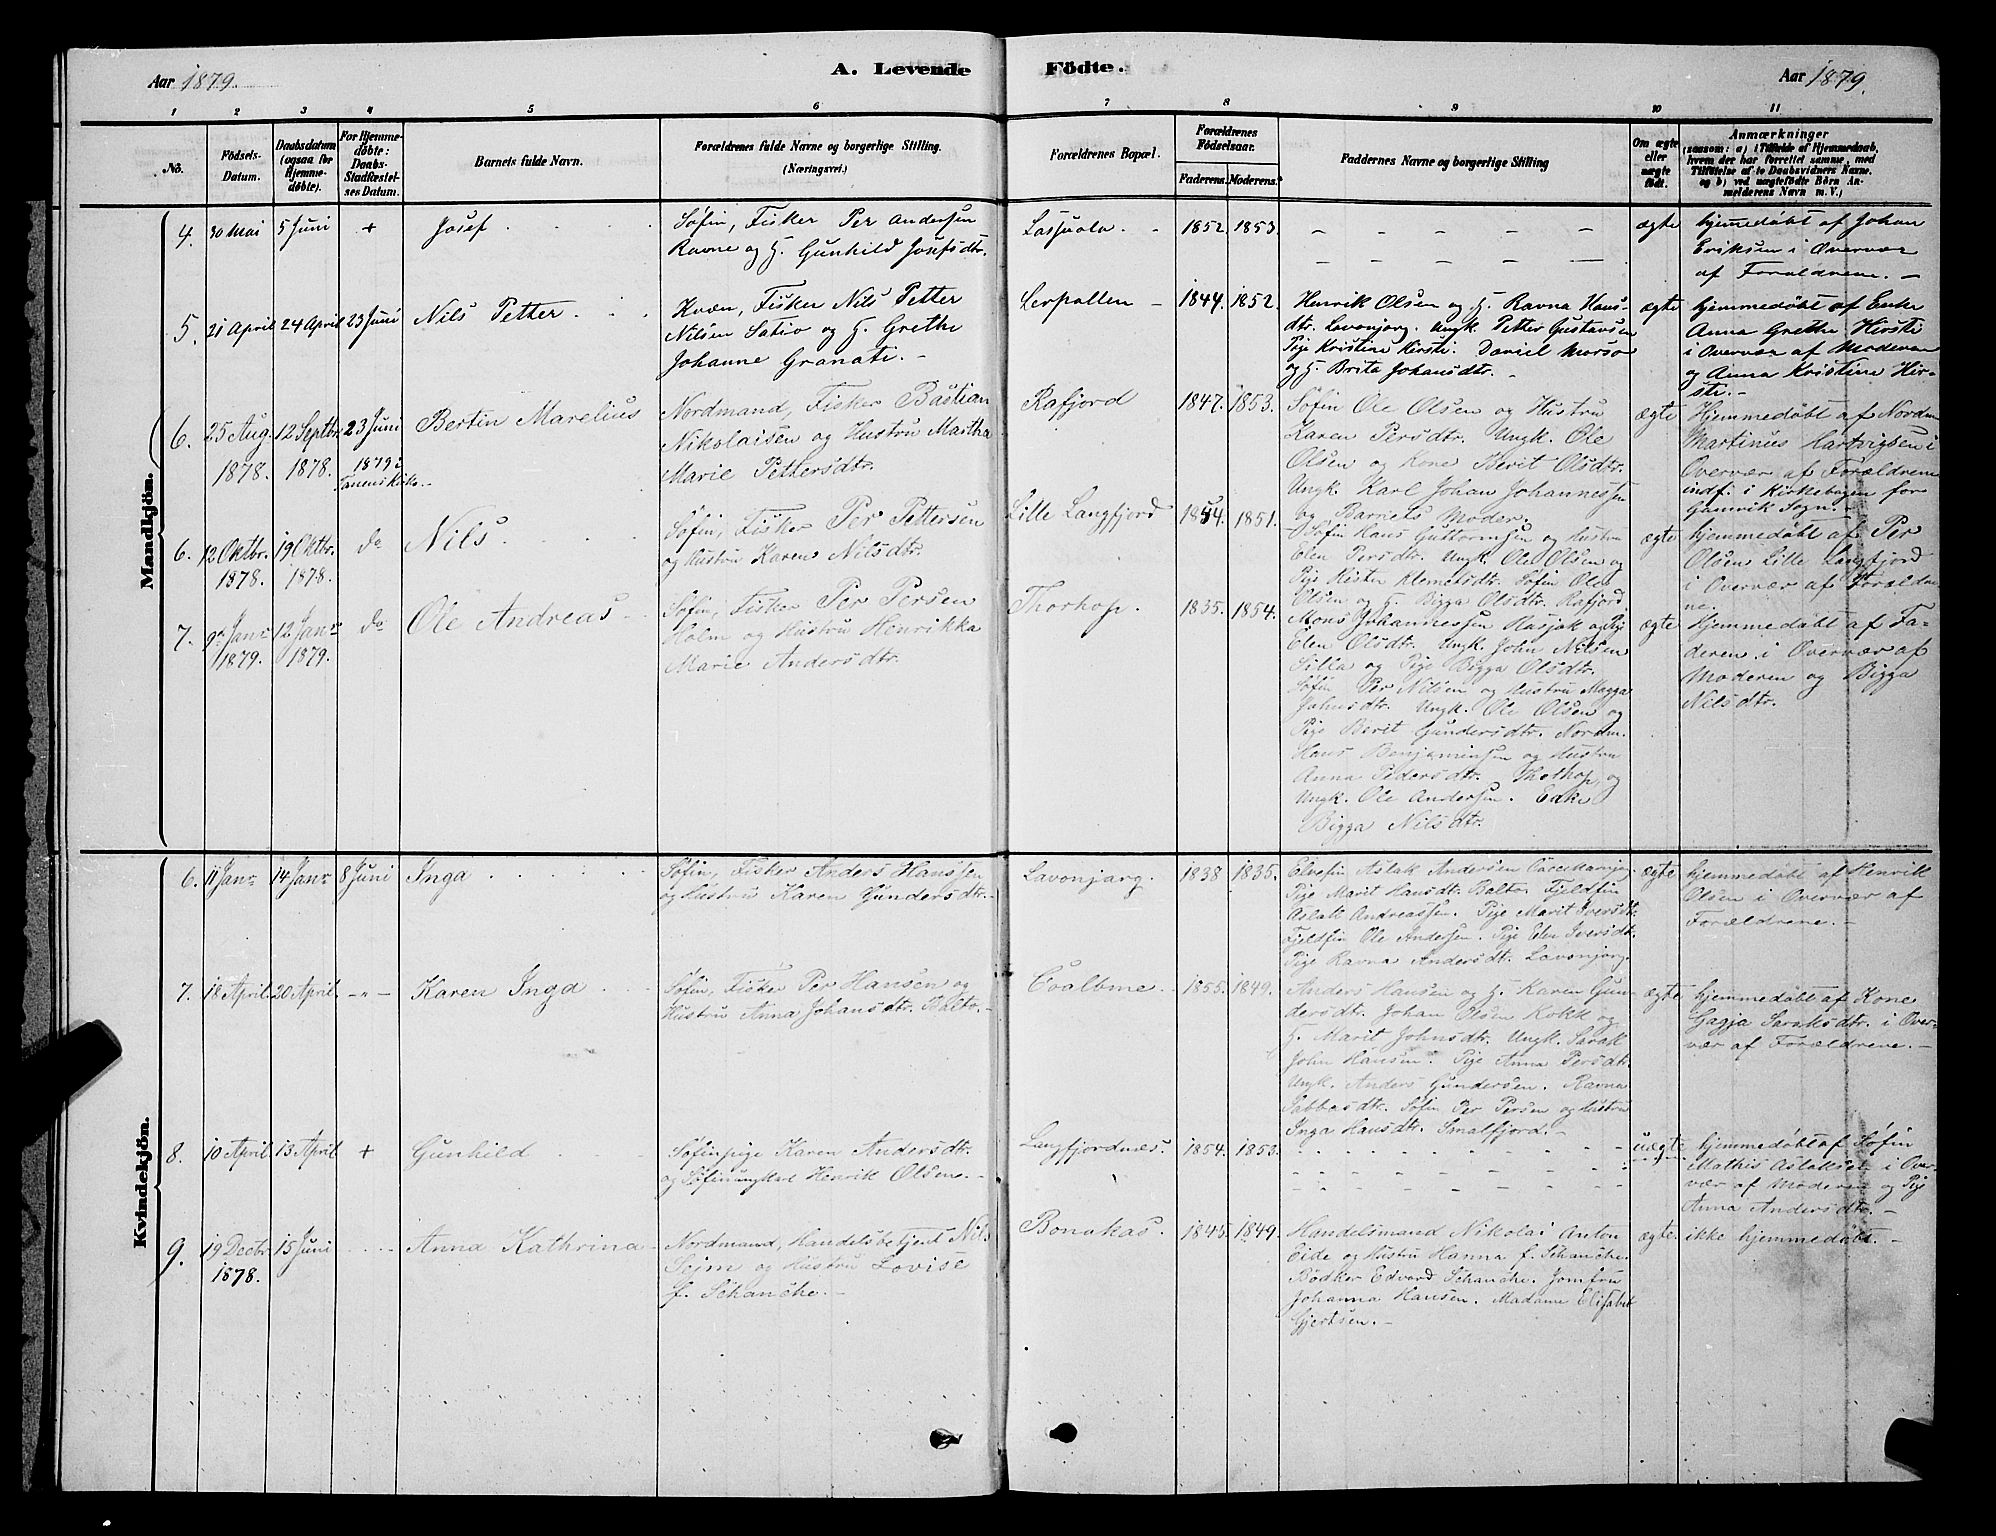 Aar 1879.
A. Levende Födte.
Aar 1879.
1 2 3 4 5 6 7 8 9 10 11
No.
Födsels-
Datum.
Daabsdatum
(ogsaa for
Hjemme-
døbte).
For Hjemme-
døbte:
Daabs-
Stadfæstel-
ses Datum.
Barnets fulde Navn.
Forældrenes fulde Navne og borgerlige Stilling.
(Næringsvei.)
Forældrenes Bopæl.
Forældrenes
Födselsaar.
Faderens. Moderens.
Faddernes Navne og borgerlige Stilling
Om ægte
eller
uægte
født.
Anmærkninger
(saasom: a) i Tilfælde af Hjemmedaab,
hvem der har forrettet samme, med
Tilføielse af to Daabsvidners Navne,
og b) ved uægtefödte Börn An-
melderens Navn m. V.)
Mandkjön.
4. 30 Mai 5 Juni + Josef
Søfin, Fisker Per Andersen
Ravne og H. Gunhild Josefsdtr.
1852. 1853.
ægte
hjemmedøbt af Johan
Eriksen i Overvær
af Forældrene. —
5. 21 April 24 April 23 Juni Nils Petter
Kvæn, Fisker Nils Petter
Nilsen Satio og H. Grethe
Johanne Granati. —
Lerpollen — 1844. 1852.
Henrik Olsen og H. Ravna Hans-
dtr. Lavonjarg. Ungk. Petter Gustavsen
Pige Kristine Kirsti. Daniel
og H. Brita Johansdtr. —
ægte
hjemmedøbt af Enke
Anna Grethe Hirsti
i Overvær af Moderen
og Anna Kristine Hir-
sti. —
6. 25 Aug. 1878. 12 Septbr. 1878. 23 Juni 1879 i Tanens Kirke. Bertin Marelius
Nordmand, Fisker Bastian
Nikolaisen og Hustru Martha
Marie Pettersdtr.
Rafjord 1847. 1853.
Søfin Ole Olsen og Hustru
Karen Persdtr. Ungk. Ole
Olsen og Kone Berit Olsdtr.
Ungk. Karl Johan Johannessen
og Barnets Moder.
ægte
Hjemmedøbt af Nordm.
Martinus Hartvigsen i
Overvær af Forældrene
indf. i Kirkebogen for
Gamvik Sogn. —
6. 12 Oktbr. 1878. 19 Oktbr. 1878. do Nils
Søfin, Fisker Per Pettersen
og Hustru Karen Nilsdtr.
Lille Langfjord 1854. 1851.
Søfin Hans Guttormsen og Hustru
Elen Persdtr. Ungk. Ole Olsen og
Pige Kisten Klemetsdtr. Søfin Ole
Olsen og H. Bigga Olsdtr. Rafjord.
ægte
hjemmedøbt af Per
Olsen Lille Langfjord
i Overvær af Foraldre-
ne.
7. 9de Janr 1879. 12 Janr 1879. do Ole Andreas
Søfin, Fisker Per Persen
Holm og Hustru Henrikka
Marie Andersdtr.
Thorhop. 1835. 1854.
Mons Johannessen Hasjok og Pige
Elen Olsdtr. Ungk. John Nilsen
Silla og Pige Bigga Olsdtr.
Søfin Per Nilsen og Hustru Magga
Johnsdtr. Ungk. Ole Olsen og
Pige Berit Gundersdtr. Nordm.
Hans Benjaminsen og Hustru
Anna Pedersdtr. Thorhop, og
Ungk. Ole Andersen. Enke
Bigga Nilsdtr.
ægte
hjemmedøbt af Fa-
deren i Overvær af
Moderen og Bigga
Nilsdtr.
Kvindekjön.
6. 11 Janr 14 Janr 8 Juni Inga
Søfin, Fisker Anders Hanssen
og Hustru Karen Gundersdtr. —
Lavonjarg. 1838 1835.
Elvefin Aslak Andersen
Pige Marit Hansdtr. Balto. Fjeldfin
Aslak Andreassen. Pige Marit Iversdtr.
Fjeldfin Ole Andersen. Pige Elen Iversdtr.
Pige Ravna Andersdtr. Lavonjarg.
ægte
hjemmedøbt af Henrik
Olsen i Overvær af
Forældrene. —
7. 18 April. 20 April. —„— Karen Inga
Søfin, Fisker Per Hansen og
Hustru Anna Johansdtr. Balto. —
1855. 1849.
Anders Hansen og H. Karen Gun-
dersdtr. Johan Olsen Kokk og
H. Marit Johnsdtr. Ungk. Sarak
John Hansen. Pige Anna Persdtr.
Ungk. Anders Gundersen. Ravna
Sabbasdtr. Søfin Per Persen og Hustru
Inga Hansdtr. Smalfjord. —
ægte
hjemmedøbt af Kone
Gagja Saraksdtr. i Over-
vær af Forældrene. —
8. 10 April. 13 April + Gunhild
Søfinpige Karen Andersdtr.
og Søfinungkarl Henrik Olsen. —
Langfjordnæs. 1854. 1853.
uægte
hjemmedøbt af Søfin
Mathis Aslaksen i Over-
vær af Moderen og Pige
Anna Andersdtr. —
9. 19 Decbr. 1878. 15 Juni Anna Kathrina
Nordmand, Handelsbetjent Nils
Sejm og Hustru Lovise
f. Schanche. —
Bonakas. 1845. 1849.
Handelsmand Nikolai Anton
Eide og Hustru Hanna f. Schanche.
Bödker Edvard Schanche. Jomfru
Johanna Hansen. Madame Elisabet
Gjertsen. —
ægte.
ikke hjemmedøbt. —